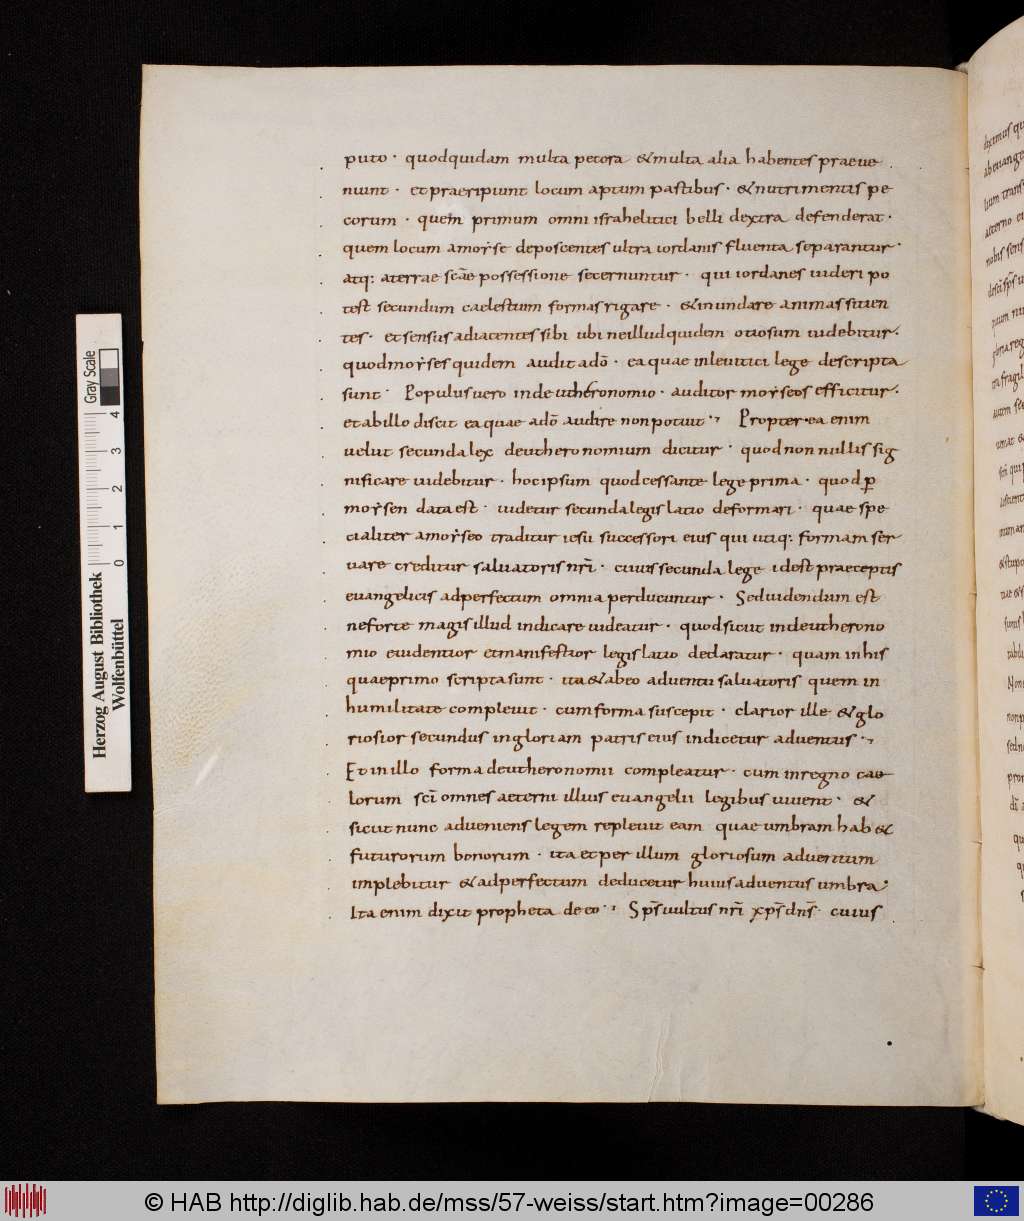 puto · quodquidam multa pecora & multa alia habentes praeue
niunt · et praeripiunt locum aptum pastibus · & nutrimentis pe
corum · quem primum omni israhelitici belli dextra defenderat ·
quem locum amoẏse deposcentes ultra iordanis fluenta separantur ·
atq: aterrae scāe possessione secernuntur · qui iordanes uideri po
test secundum caelestium formas rigare · & inundare animas sitien
tes · et sensus adiacentes sibi ubi neillud quidem otiosum uidebitur ·
quod moẏses quidem audit adō · ea quae inleuitici lege descripta
sunt · Populus uero indeutheronomio · auditor moẏseos efficitur ·
et abillo discit ea quae adō audire non potuit · Propter ea enim
uelut secunda lex deutheronomium dicitur · quod non nullis sig
nificare uidebitur · hoc ipsum quod cessante lege prima · quod ꝑ
moẏsen data est · uidetur secunda legis latio deformari · quae spe
cialiter amoẏseo traditur iesu successori eius qui utiq: formam ser
uare creditur saluatoris nr̄i · cuius secunda lege idest praeceptis
euangelicis adperfectum omnia perducuntur · Sed uidendum est
neforte magis illud indicare uideatur · quod sicut indeutherono
mio euidentior et manifestior legis latio declaratur · quam in his
quae primo scripta sunt · ita & abeo aduentu saluatoris quem in
humilitate compleuit · cum forma suscepit · clarior ille & glo
riosior secundus ingloriam patris eius indicetur aduentus ·
Et in illo forma deutheronomii compleatur · cum inregno cae
lorum sc̄i omnes aeterni illius euangelii legibus uiuent · &
sicut nunc adueniens legem repleuit eam quae umbram hab&
futurorum bonorum · ita et per illum gloriosum aduentum
implebitur & adperfectum deducetur huius aduentus umbra ·
Ita enim dixit propheta de eo · Sp̄s uultus nr̄i xp̄s dn̄s · cuius
Gray Scale
0 1 2 3 4
Herzog August Bibliothek
Wolfenbüttel
© HAB http://diglib.hab.de/mss/57-weiss/start.htm?image=00286